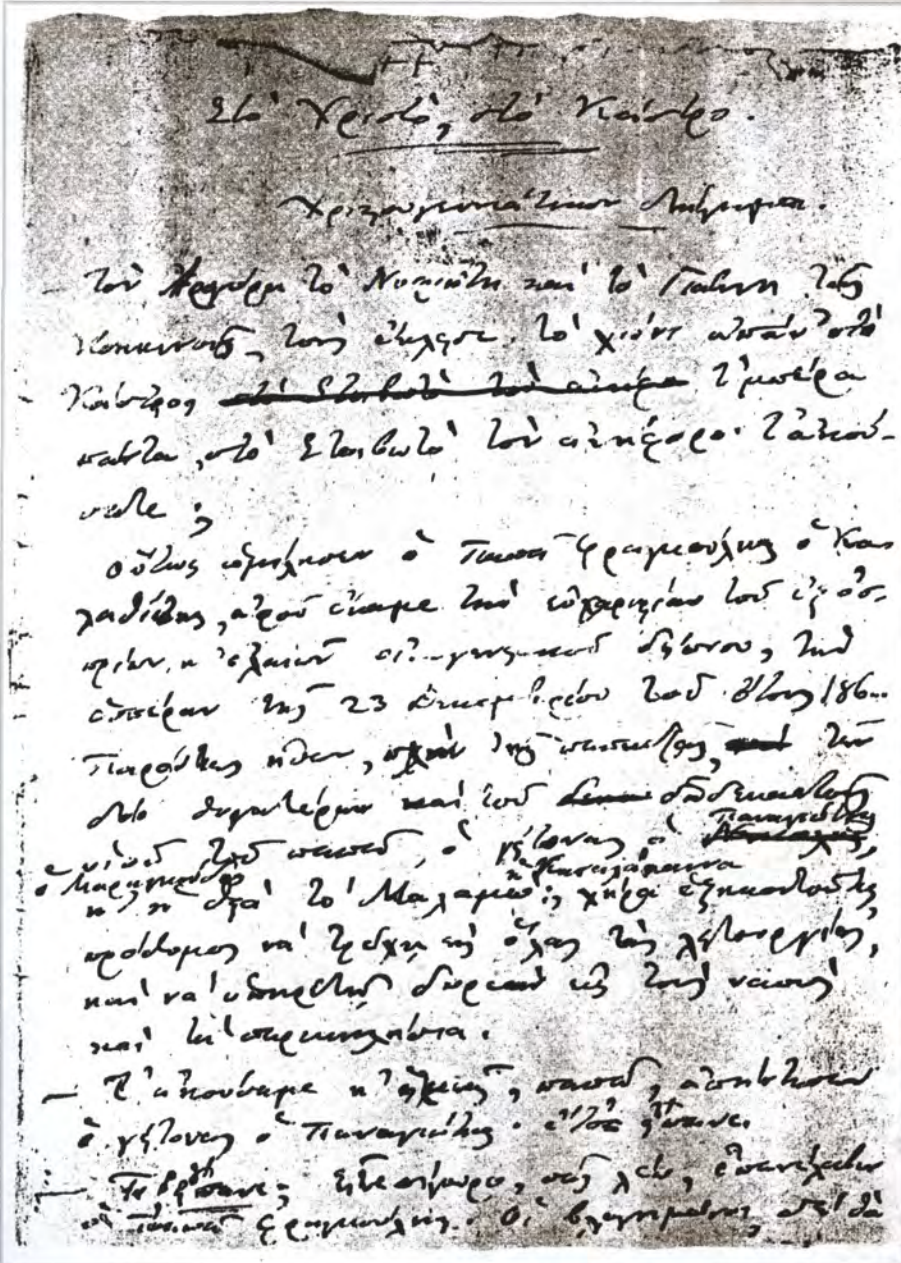 Στὸ Χριστό, στὸ Κάστρο.
Χριστουγεννιάτικον διήγημα.
— Τὸν Ἀργύρη τὸ Μυριώτη καὶ τὸ Γιάννη τῆς
Κοκκινοῦς, τοὺς ἔκλεισε τὸ χιόνι ἀπάν' στὸ
Κάστρο, στὸ Στοιβωτὸ τὸν ἀνήφο τ'μπέρα
πάντα, στὸ Στοιβωτὸ τὸν ἀνήφορο· τ' ἀκού-
σατε;
Οὕτως ὡμίλησεν ὁ παπᾶ Φραγκούλης ὁ Σα
κελλάριος, ἀφοῦ ἔκαμε τὴν εὐχαριστίαν τοῦ ἐξ ὀσ-
πρίων κ' ἐλαιῶν οἰκογενειακοῦ δείπνου, τὴν
ἑσπέραν τῆς 23 Δεκεμβρίου τοῦ ἔτους 186..
Παρόντες ἦσαν, πλὴν τῆς παπαδιᾶς, καὶ τῶν
δύο θυγατέρων καὶ τοῦ δωδεκαετοῦς
υἱοῦ τοῦ παπᾶ, ὁ γείτονας ὁ Παναγιώτης
κ' ἡ θειὰ τὸ Μαλαμώ, χήρα ἑξηκοντοῦτις
πρόθυμος νὰ τρέχῃ εἰς ὅλας τὰς λειτουργίας,
καὶ νὰ ὑπηρετῇ δωρεὰν εἰς τοὺς ναοὺς
καὶ τὰ παρεκκλήσια.
— Τ' ἀκούσαμε κ' ἡμεῖς, παπᾶ, ἀπήντησεν
ὁ γείτονας ὁ Παναγιώτης· ἔτσι εἴπανε.
— Τί θὰ εἴπανε; εἶνε σίγουρο, σᾶς λέω, ἐπανέλαβεν
ὁ παπᾶ Φραγκούλης. Οἱ βλοημένοι, δὲν θὰ